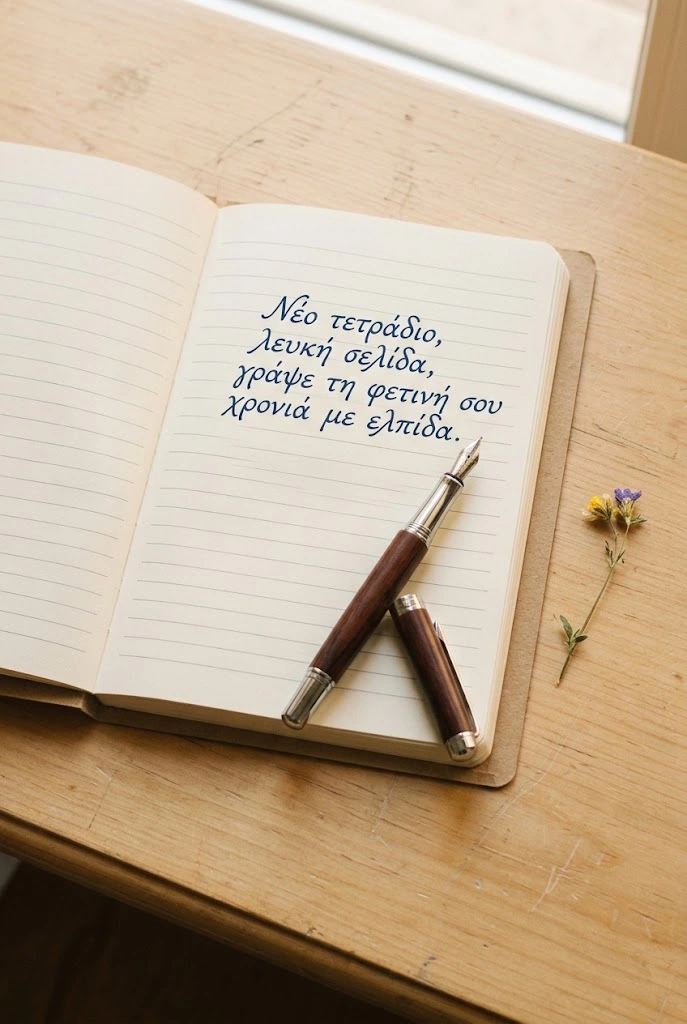 Νέο τετράδιο,
λευκή σελίδα,
γράψε τη φετινή σου
χρονιά με ελπίδα.